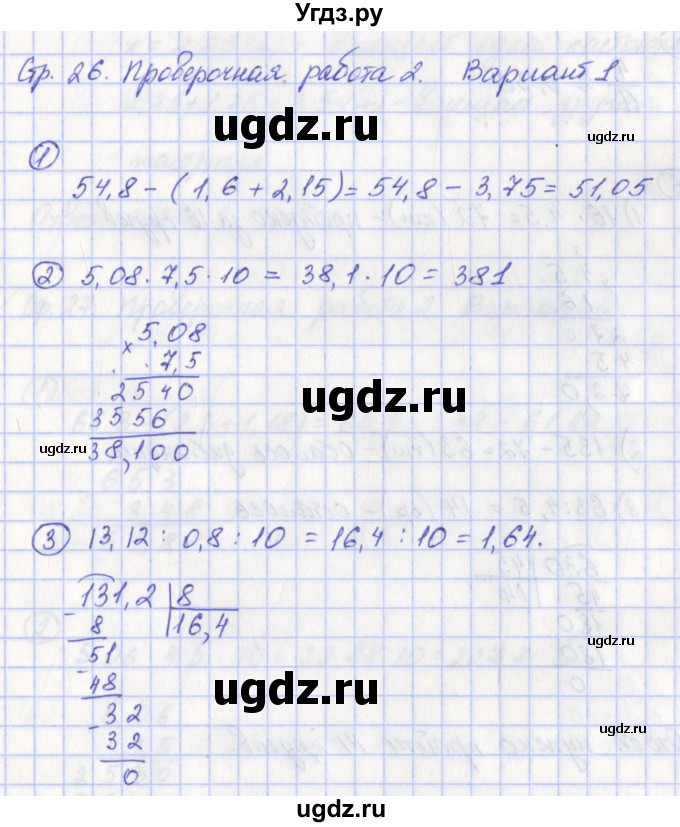 Угдз.ру
Стр. 26. Проверочная работа 2. Вариант 1.
ugdz.ru
1
54,8 - (1,6 + 2,15) = 54,8 - 3,75 = 51,05
2 5,08 · 7,5 · 10 = 38,1 · 10 = 381
5,08
× 7,5
2540
ugdz.ru
3556
ugdz.ru ugdz.ru
38,100
3 13,12 : 0,8 : 10 = 16,4 : 10 = 1,64.
131,2 | 8
- 8 16,4
51
- 48
ugdz.ru
- 32
32
0
ugdz.ru